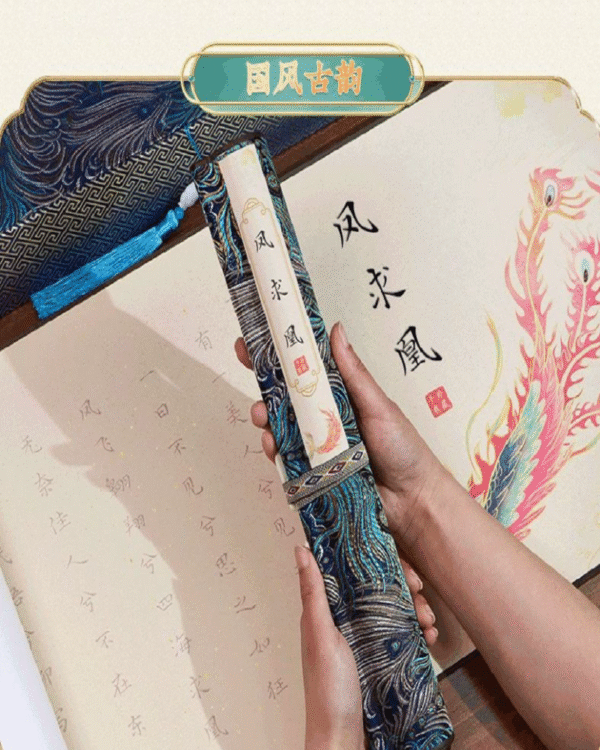 国风古韵
凤求凰
凤求凰
有一美人兮见
一日不见兮思之如狂
凤飞翱翔兮四海求凰
无奈佳人兮不在东